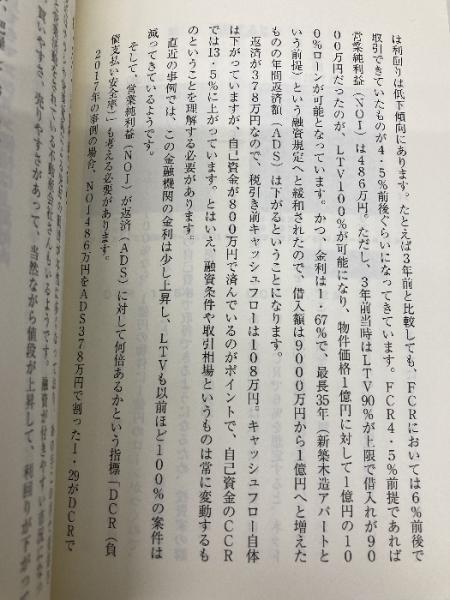 は利回りは低下傾向にあります。たとえば3年前と比較しても、FCRにおいては6%前後で
取引できていたものが4・5%前後ぐらいになってきています。FCR4・5%前提であれば
営業純利益(NOI)は486万円。ただし、3年前当時はLTV90%が上限で借入れが90
00万円だったのが、LTV100%が可能になり、物件価格1億円に対して1億円の10
0%ローンが可能となっています。かつ、金利は1・67%で、最長35年(新築木造アパートと
いう前提)という融資規定へと緩和されたので、借入額は9000万円から1億円へと増えた
ものの年間返済額(ADS)は下がるということになります。
返済が378万円なので、税引き前キャッシュフローは108万円。キャッシュフロー自体
は下がっていますが、自己資金が800万円で済んでいるのがポイントで、自己資金のCCR
では13・5%に上がっています。とはいえ、融資条件や取引相場というものは常に変動するも
のということを理解する必要があります。
直近の事例では、この金融機関の金利は少し上昇し、LTVも以前ほど100%の案件は
減ってきているようです。
そして、営業純利益(NOI)が返済(ADS)に対して何倍あるかという指標「DCR(負
債支払い安全率)」も考える必要があります。
2017年の事例の場合、NOI486万円をADS378万円で割った1・29がDCRで
いる不動産会社さんもいるようです。融資が付きやすい
買いやすさ、売りやすさがあって、当然ながら値段が上昇して、利回りが下がっ